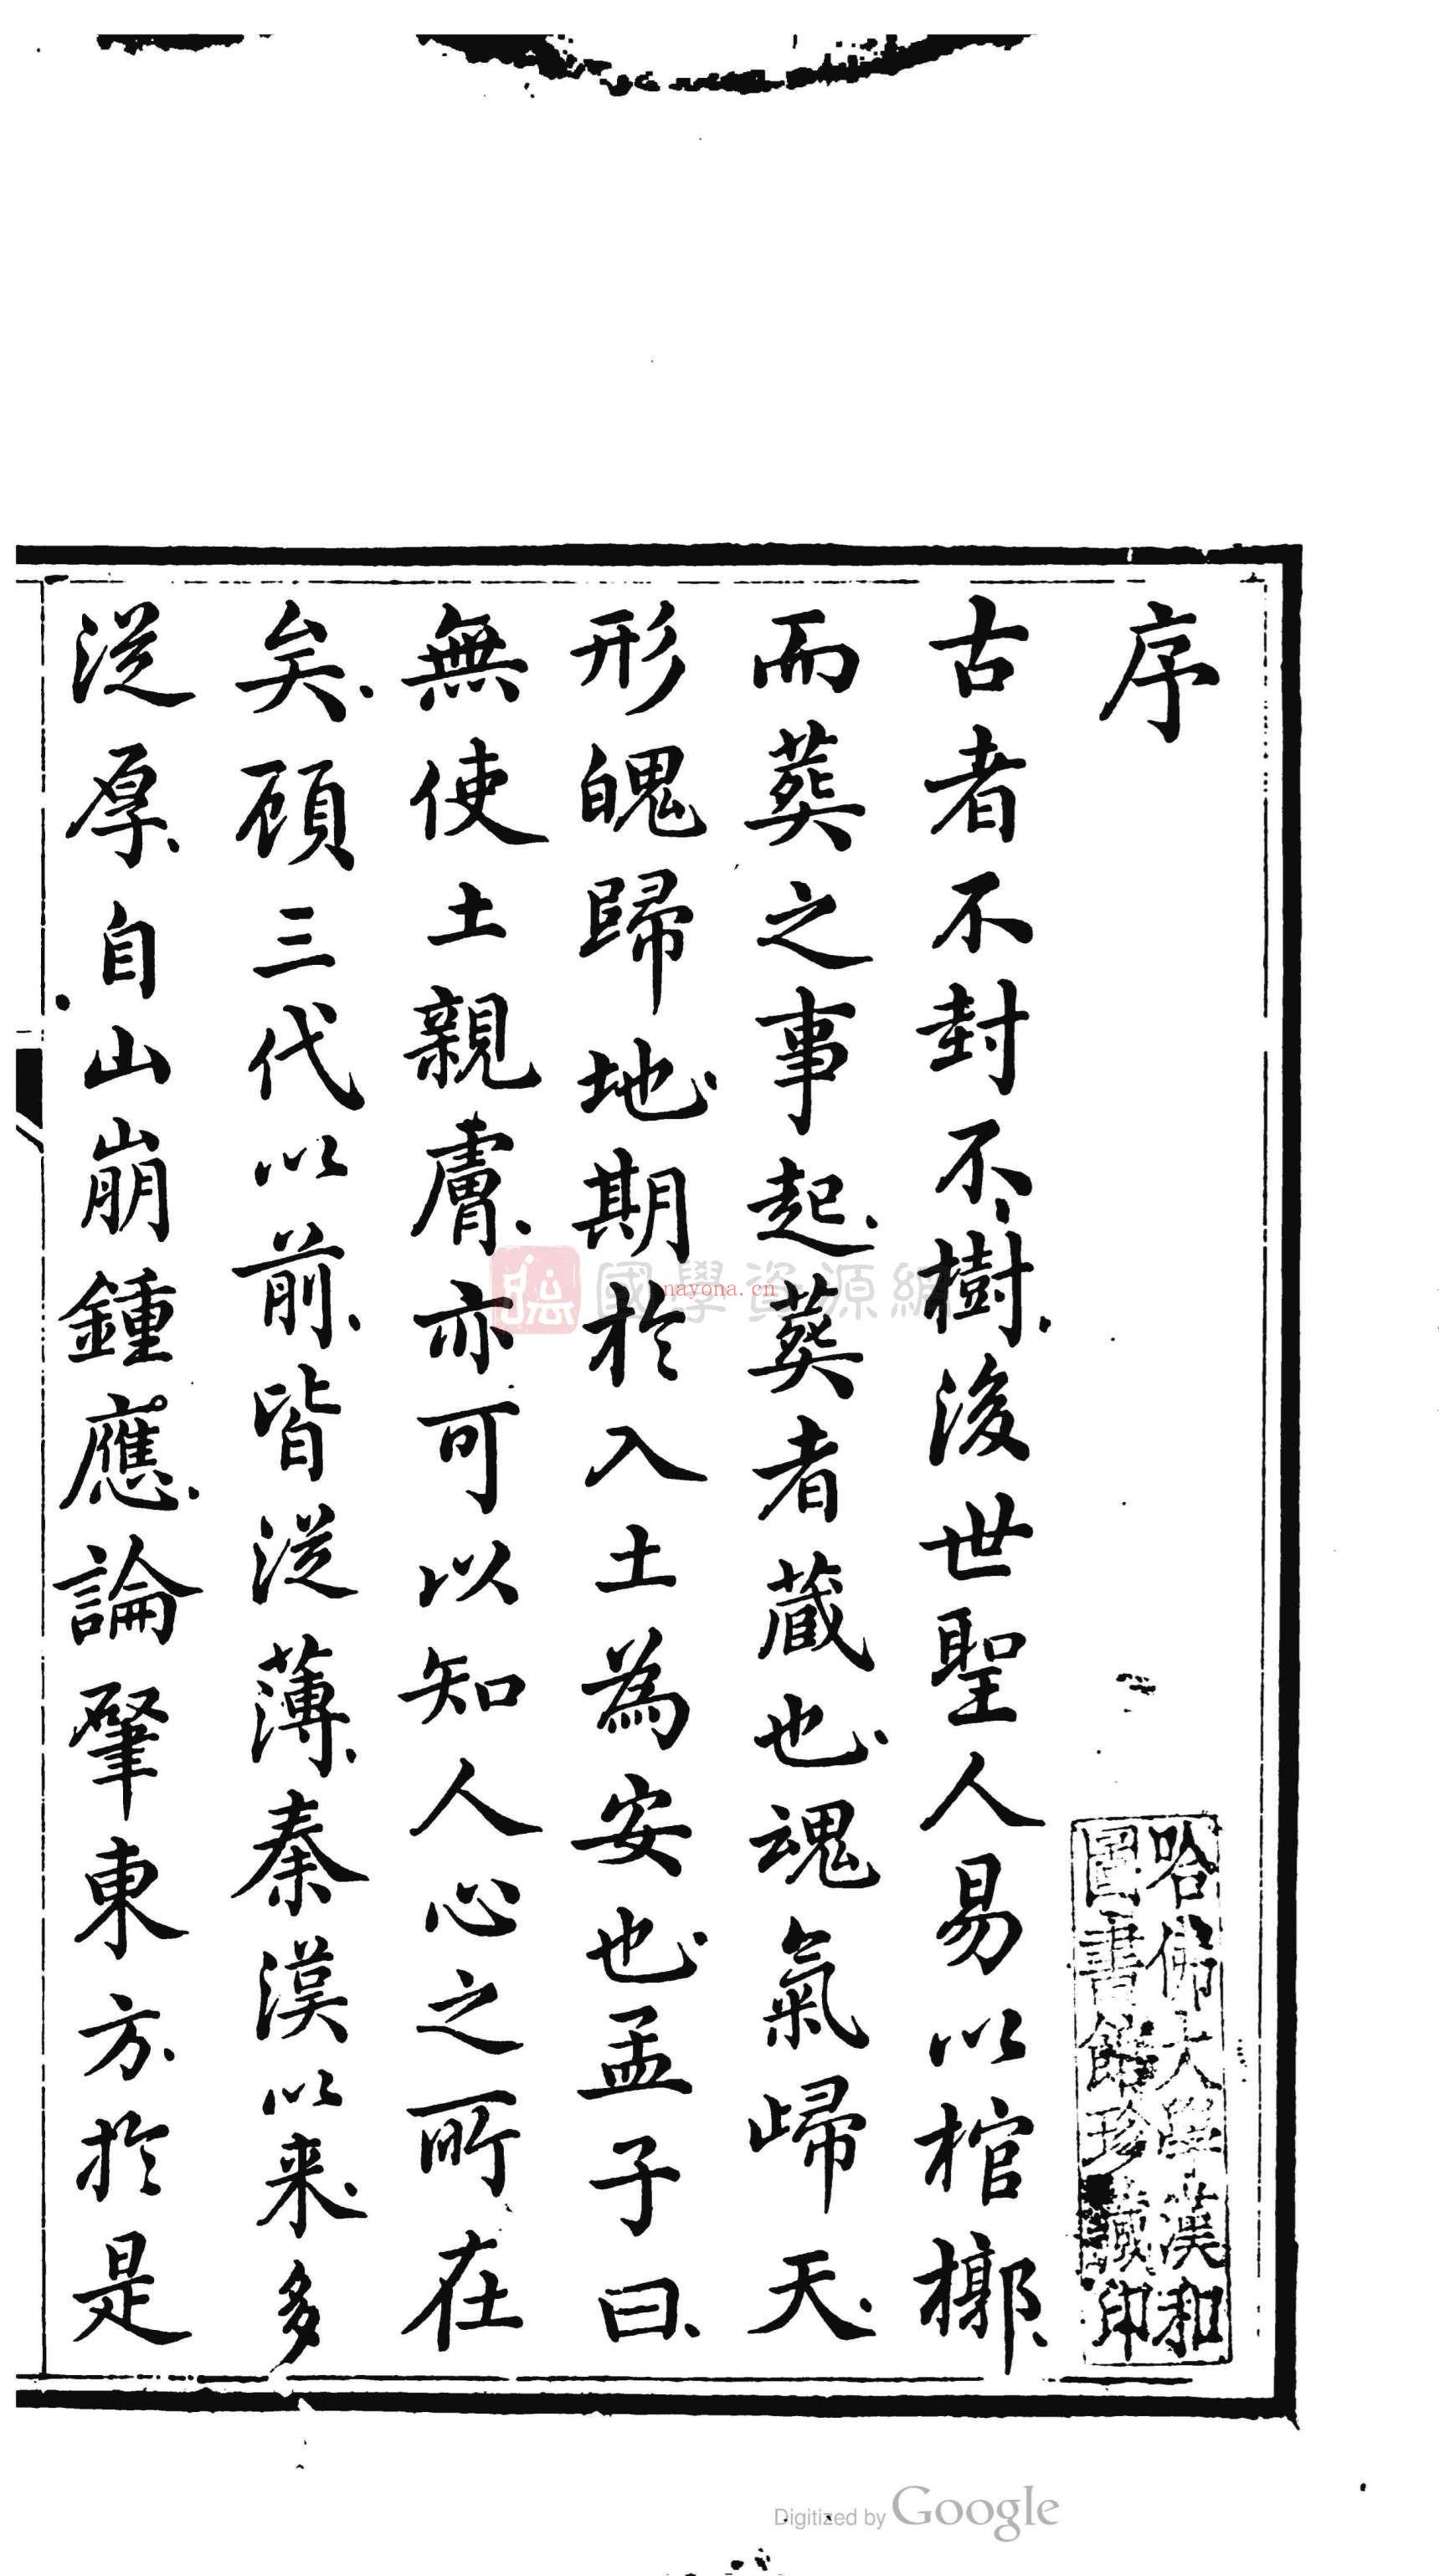 序
古者不封不樹後世聖人易以棺槨
而葬之事起葬者藏也魂氣歸天
形魄歸地期於入土為安也孟子曰
無使土親膚亦可以知人心之所在
矣顧三代以前皆從薄秦漢以来多
從厚自山崩鍾應論肇東方於是
哈佛大學漢和
圖書館珍藏印
國學資源網
nayona.cn
Digitized by Google